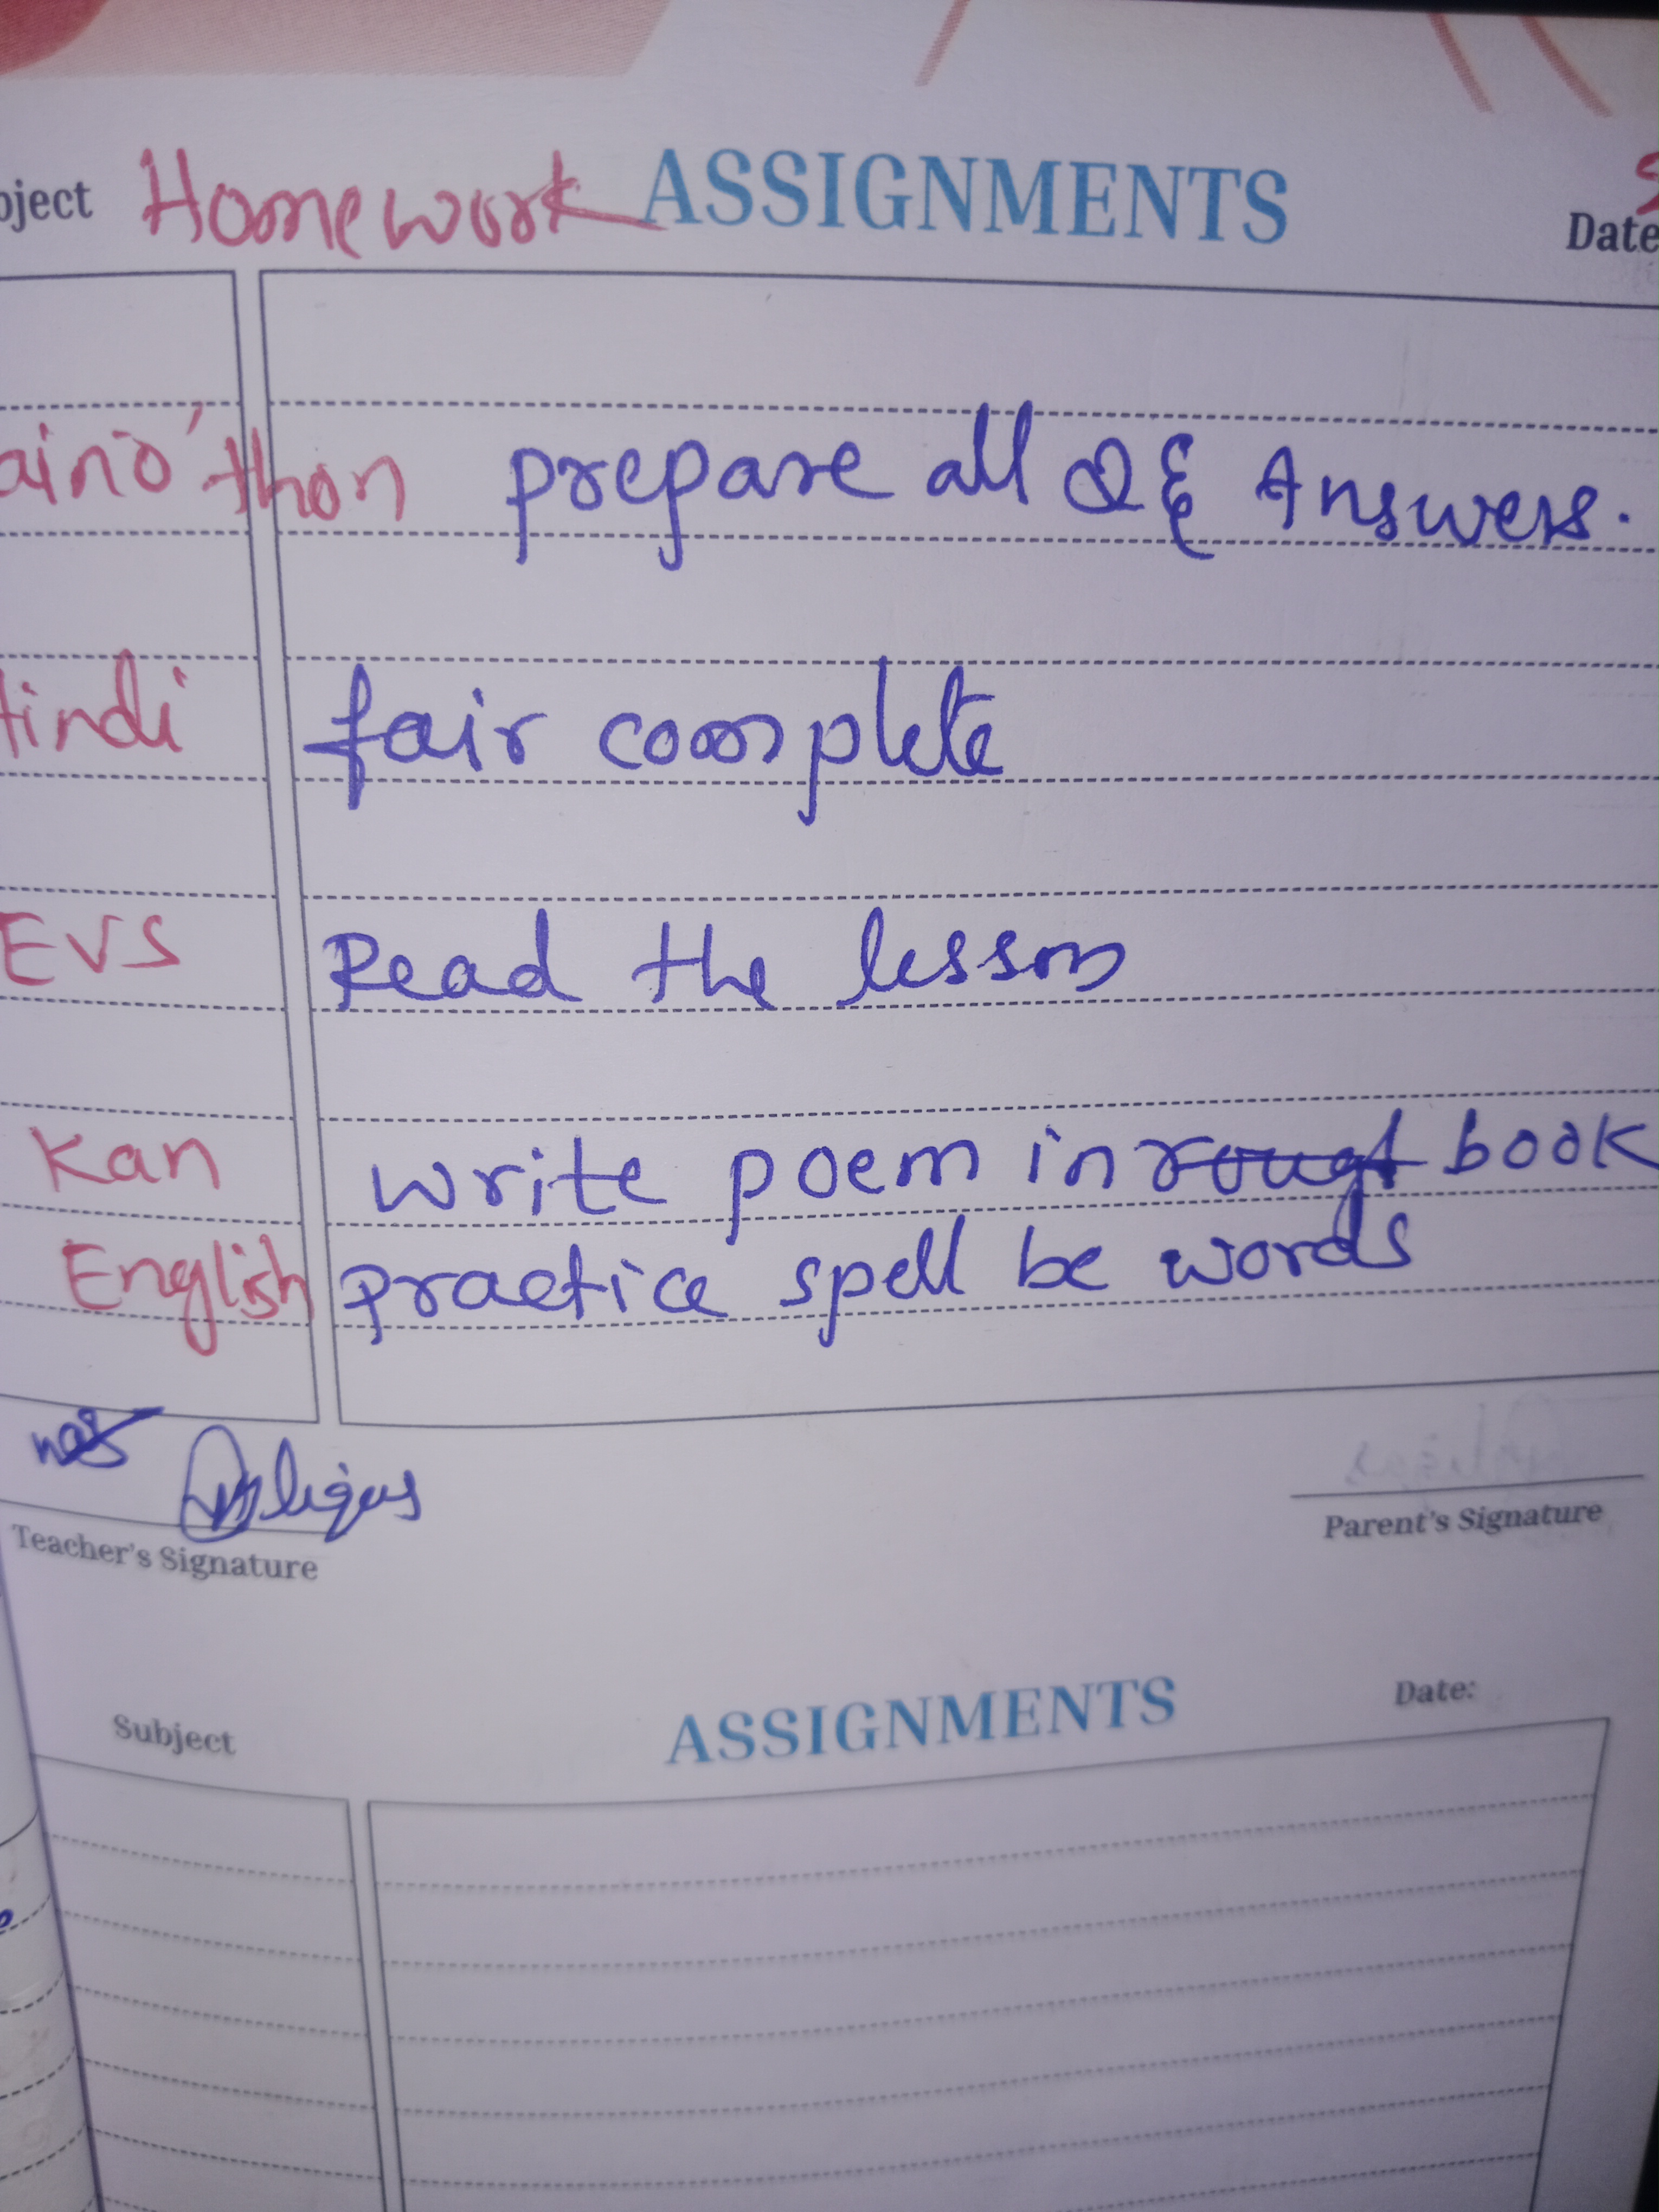 Homework ASSIGNMENTS
Date
thon prepare all Q & Answers.
Hindi fair complete
EVS Read the lesson
Kan write poem in rough book
English practice spell be words
Teacher's Signature
Parent's Signature
Subject ASSIGNMENTS Date: